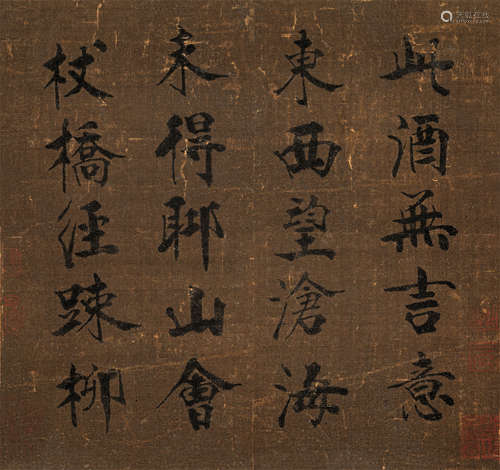 此酒無吉意
東西望滄海
未得聊山會
杖橋徑踈柳